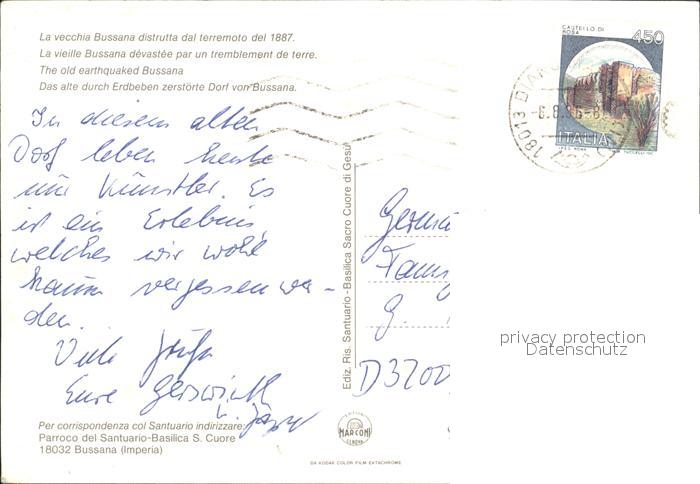 La vecchia Bussana distrutta dal terremoto del 1887.
La vieille Bussana dévastée par un tremblement de terre.
The old earthquaked Bussana
Das alte durch Erdbeben zerstörte Dorf von Bussana.
CASTELLO DI
ROSA
450
ITALIA
18013 DIANO
In diesem alten
Dorf leben heute
nur Künstler. Es
ist ein Erlebnis,
welches wir wohl
kaum vergessen wer-
den.
Viele Grüße
Eure
Ediz. Ris. Santuario-Basilica Sacro Cuore di Gesù
Fam
G.
D3200
privacy protection
Datenschutz
Per corrispondenza col Santuario indirizzare:
Parroco del Santuario-Basilica S. Cuore
18032 Bussana (Imperia)
MARCONI
GENOVA
DA KODAK COLOR FILM EKTACHROME